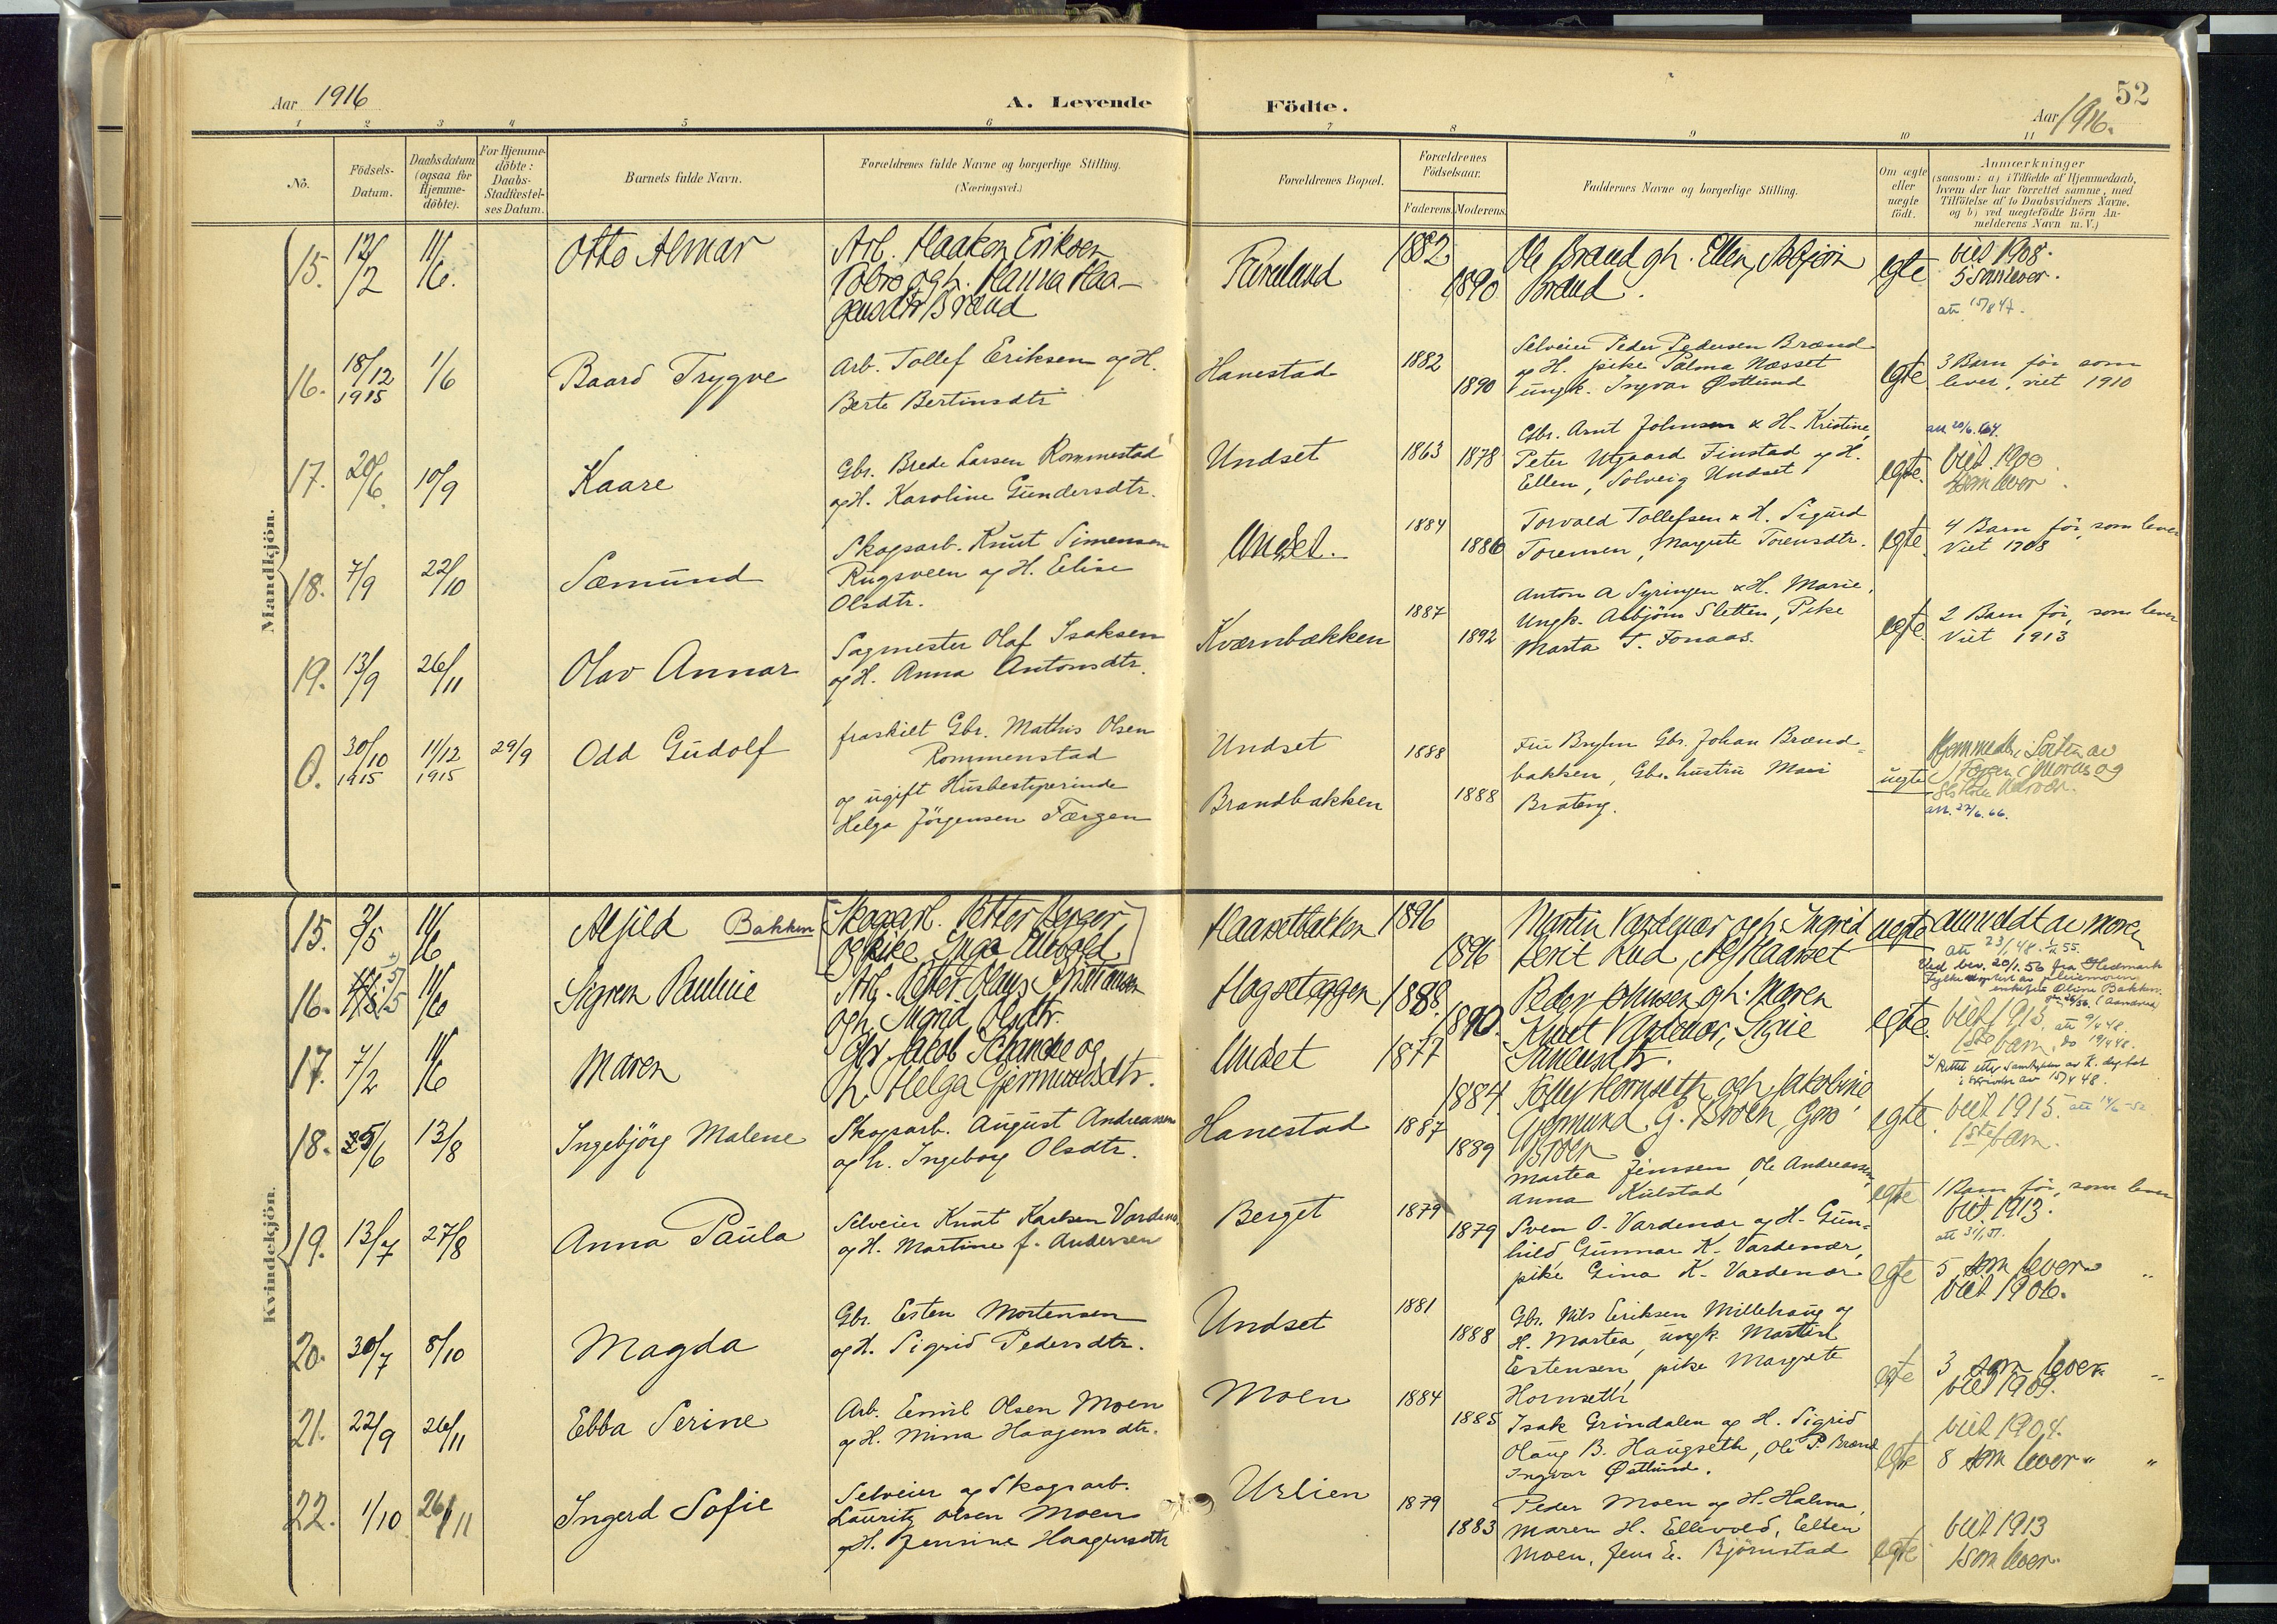 52
Aar 1916
A. Levende Födte.
Aar 1916.
1 2 3 4 5 6 7 8 9 10 11
No.
Födsels-
Datum.
Daabsdatum
(ogsaa for
Hjemme-
döbte).
For Hjemme-
döbte:
Daabs-
Stadfæstel-
ses Datum.
Barnets fulde Navn.
Forældrenes fulde Navne og borgerlige Stilling.
(Næringsvei.)
Forældrenes Bopæl.
Forældrenes
Födselsaar.
Faderens. Moderens.
Faddernes Navne og borgerlige Stilling.
Om ægte
eller
uægte
født.
Anmærkninger
(saasom: a) i Tilfælde af Hjemmedaab,
hvem der har forrettet samme, med
Tilföielse af to Daabsvidners Navne,
og b) ved uægtefödte Börn An-
melderens Navn m.V.)
Mandkjön.
15. 12/2 11/6. Otto Almar
Arb. Haaken Eriksen
og h. Hanna Haa-
gensdtr Brænd
1882
1890
Ole Brænd gh. Ellen, Asbjørn
Brænd.
egte
viet 1908.
5 som lever.
att 15/8 47.
16. 18/12 1915 1/6 Baard Trygve
Arb. Tollef Eriksen og H.
Berte Bertinsdtr
Hanestad
1882
1890
Selveier Peder Pedersen Brænd
og H. pike Palma Næsset
ungk. Ingvar Østlund
egte
3 Barn før som
lever, viet 1910
17. 20/6. 10/9 Kaare
Gbr. Brede Larsen Rommestad
og H. Karoline Gundersdtr.
Undset
1863 1878
Gbr. Arnt Johnsen & H. Kristine,
Peter Utgaard Finstad og H.
Ellen, Solveig Undset
egte.
att 20/6. 64.
viet 1900
som lever.
18. 7/9 22/10 Sæmund
Skogsarb. Knut Simensen
Rugsveen og H. Elise
Olsdtr.
Undset.
1884
1886
Torvald Tollefsen & H. Sigurd
Torensen, Margrete Torensdtr.
egte.
4 Barn før, som lever
Viet 1908
19. 13/9 26/11 Olav Annar
Sagmester Olaf Isaksen
og H. Anna Antonsdtr.
Kværnbækken
1887
1892
Anton A Syringen & H. Marie,
Ungk. Asbjörn Sletten, Pike
Marta T. Fonaas.
egte.
2 Barn før, som lever
Viet 1913
0. 30/10 1915 11/12 1915 29/9 Odd Gudolf
fraskilt Gbr. Mathis Olsen
Rommenstad
og ugift Husbestyrerinde
Helga Jörgensen Færgen
Undset
Brandbakken
1888
1888
Fru Bryhn Gbr. Johan Brænd-
bakken, Gbr. hustru Mari
Brateng.
uegte
att. 22/6. 66.
Kvindekjön.
15. 2/5 11/6 Alfild Bakken
Skogsarb. Petter Berger
og pike Inga Ellevold
Haasetbakken
1896
1896
Martin Vardenær og h. Ingrid
Berit Rud, Haasset
uegte
anmeldt av moren
att 23/1 48. 55.
Ved bev. 20/1. 56 fra Hedmark
Fylke adoptert av pleiemoren
enkefru Oline Bakken.
16. 15/5 11/6 Sigrun Pauline
Arb. Petter Olaus Kristiansen
og h. Ingrid Olsdtr.
Hagsetæggen
1888.
1890.
Peder Johnsen gh. Maren
Knut Vardenær, Signe
Simensdtr.
egte.
viet 1915, att 9/4 48.
1ste barn, do 19/4 48.
17. 7/2 11/6 Maren
Gbr Jakob Schancke og
h. Helga Gjermundsdtr.
Undset
1877
1884.
Tollef Hornseth og h. Jakobine
Gudmund G. Broen, Gro
Broen
egte.
viet 1915. att 14/6-52
1ste barn.
18. 25/6 13/8 Ingebjörg Malene
Skogsarb. August Andreassen
og h. Ingeborg Olsdtr.
Hanestad
1887
1889
Martea Jenssen, Ole Andreassen,
Anna Kulstad
egte
1 Barn før, som lever
viet 1913.
19. 13/7 27/8 Anna Paula
Selveier Knut Karlsen Vardenær
og H. Martine f. Andersen
Berget
1879
1879
Sven O. Vardenær og H. Gun-
hild, Gunnar K. Vardenær,
pike Gina K. Vardenær
egte
5 som lever
viet 1906.
20. 30/7 8/10 Magda
Gbr. Esten Mortensen
og H. Sigrid Pedersdtr.
Undset
1881
1888
Gbr. Nils Eriksen Millehaug og
H. Martea, ungk. Martin
Estensen, pike Margrete
Hornseth
egte
3 som lever
viet 1909.
21. 22/9 26/11 Ebba Serine
Arb. Emil Olsen Moen
og H. Mina Haagensdtr.
Moen
1884
1885
Isak Grindalen og H. Sigrid
Olaug B. Haugseth, Ole P. Brænd
Ingvar Østlund.
egte
viet 1904.
8 som lever
22. 1/10 26/11 Ingerd Sofie
Selveier og Skogsarb.
Lauritz Olsen Moen
og H. Jensine Haagensdtr
Urlien
1879
1883
Peder Moen og H. Halma,
Maren H. Ellevold, Ellen
Moen, Jens E. Bjørnstad
egte
viet 1913
1 som lever.